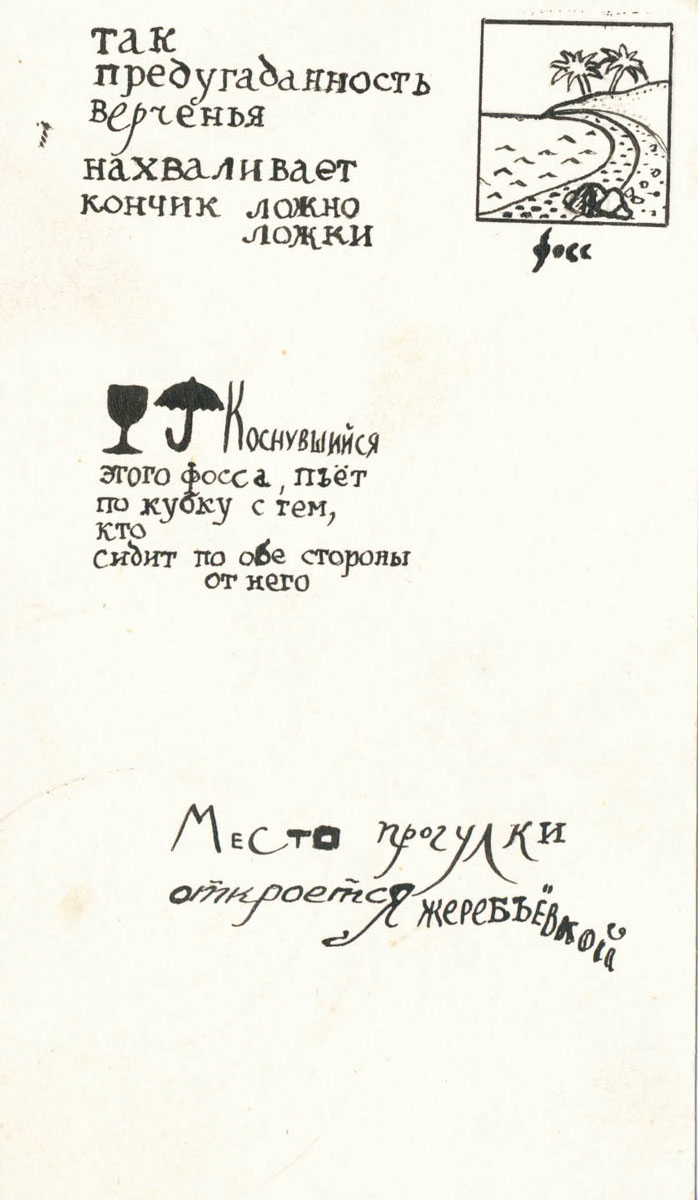 так
предугаданность
верченья
нахваливает
кончик ложно
ложки
фосс
Коснувшийся
этого фосса, пьёт
по кубку с тем,
кто
сидит по обе стороны
от него
Место прогулки
откроется жеребьёвкой